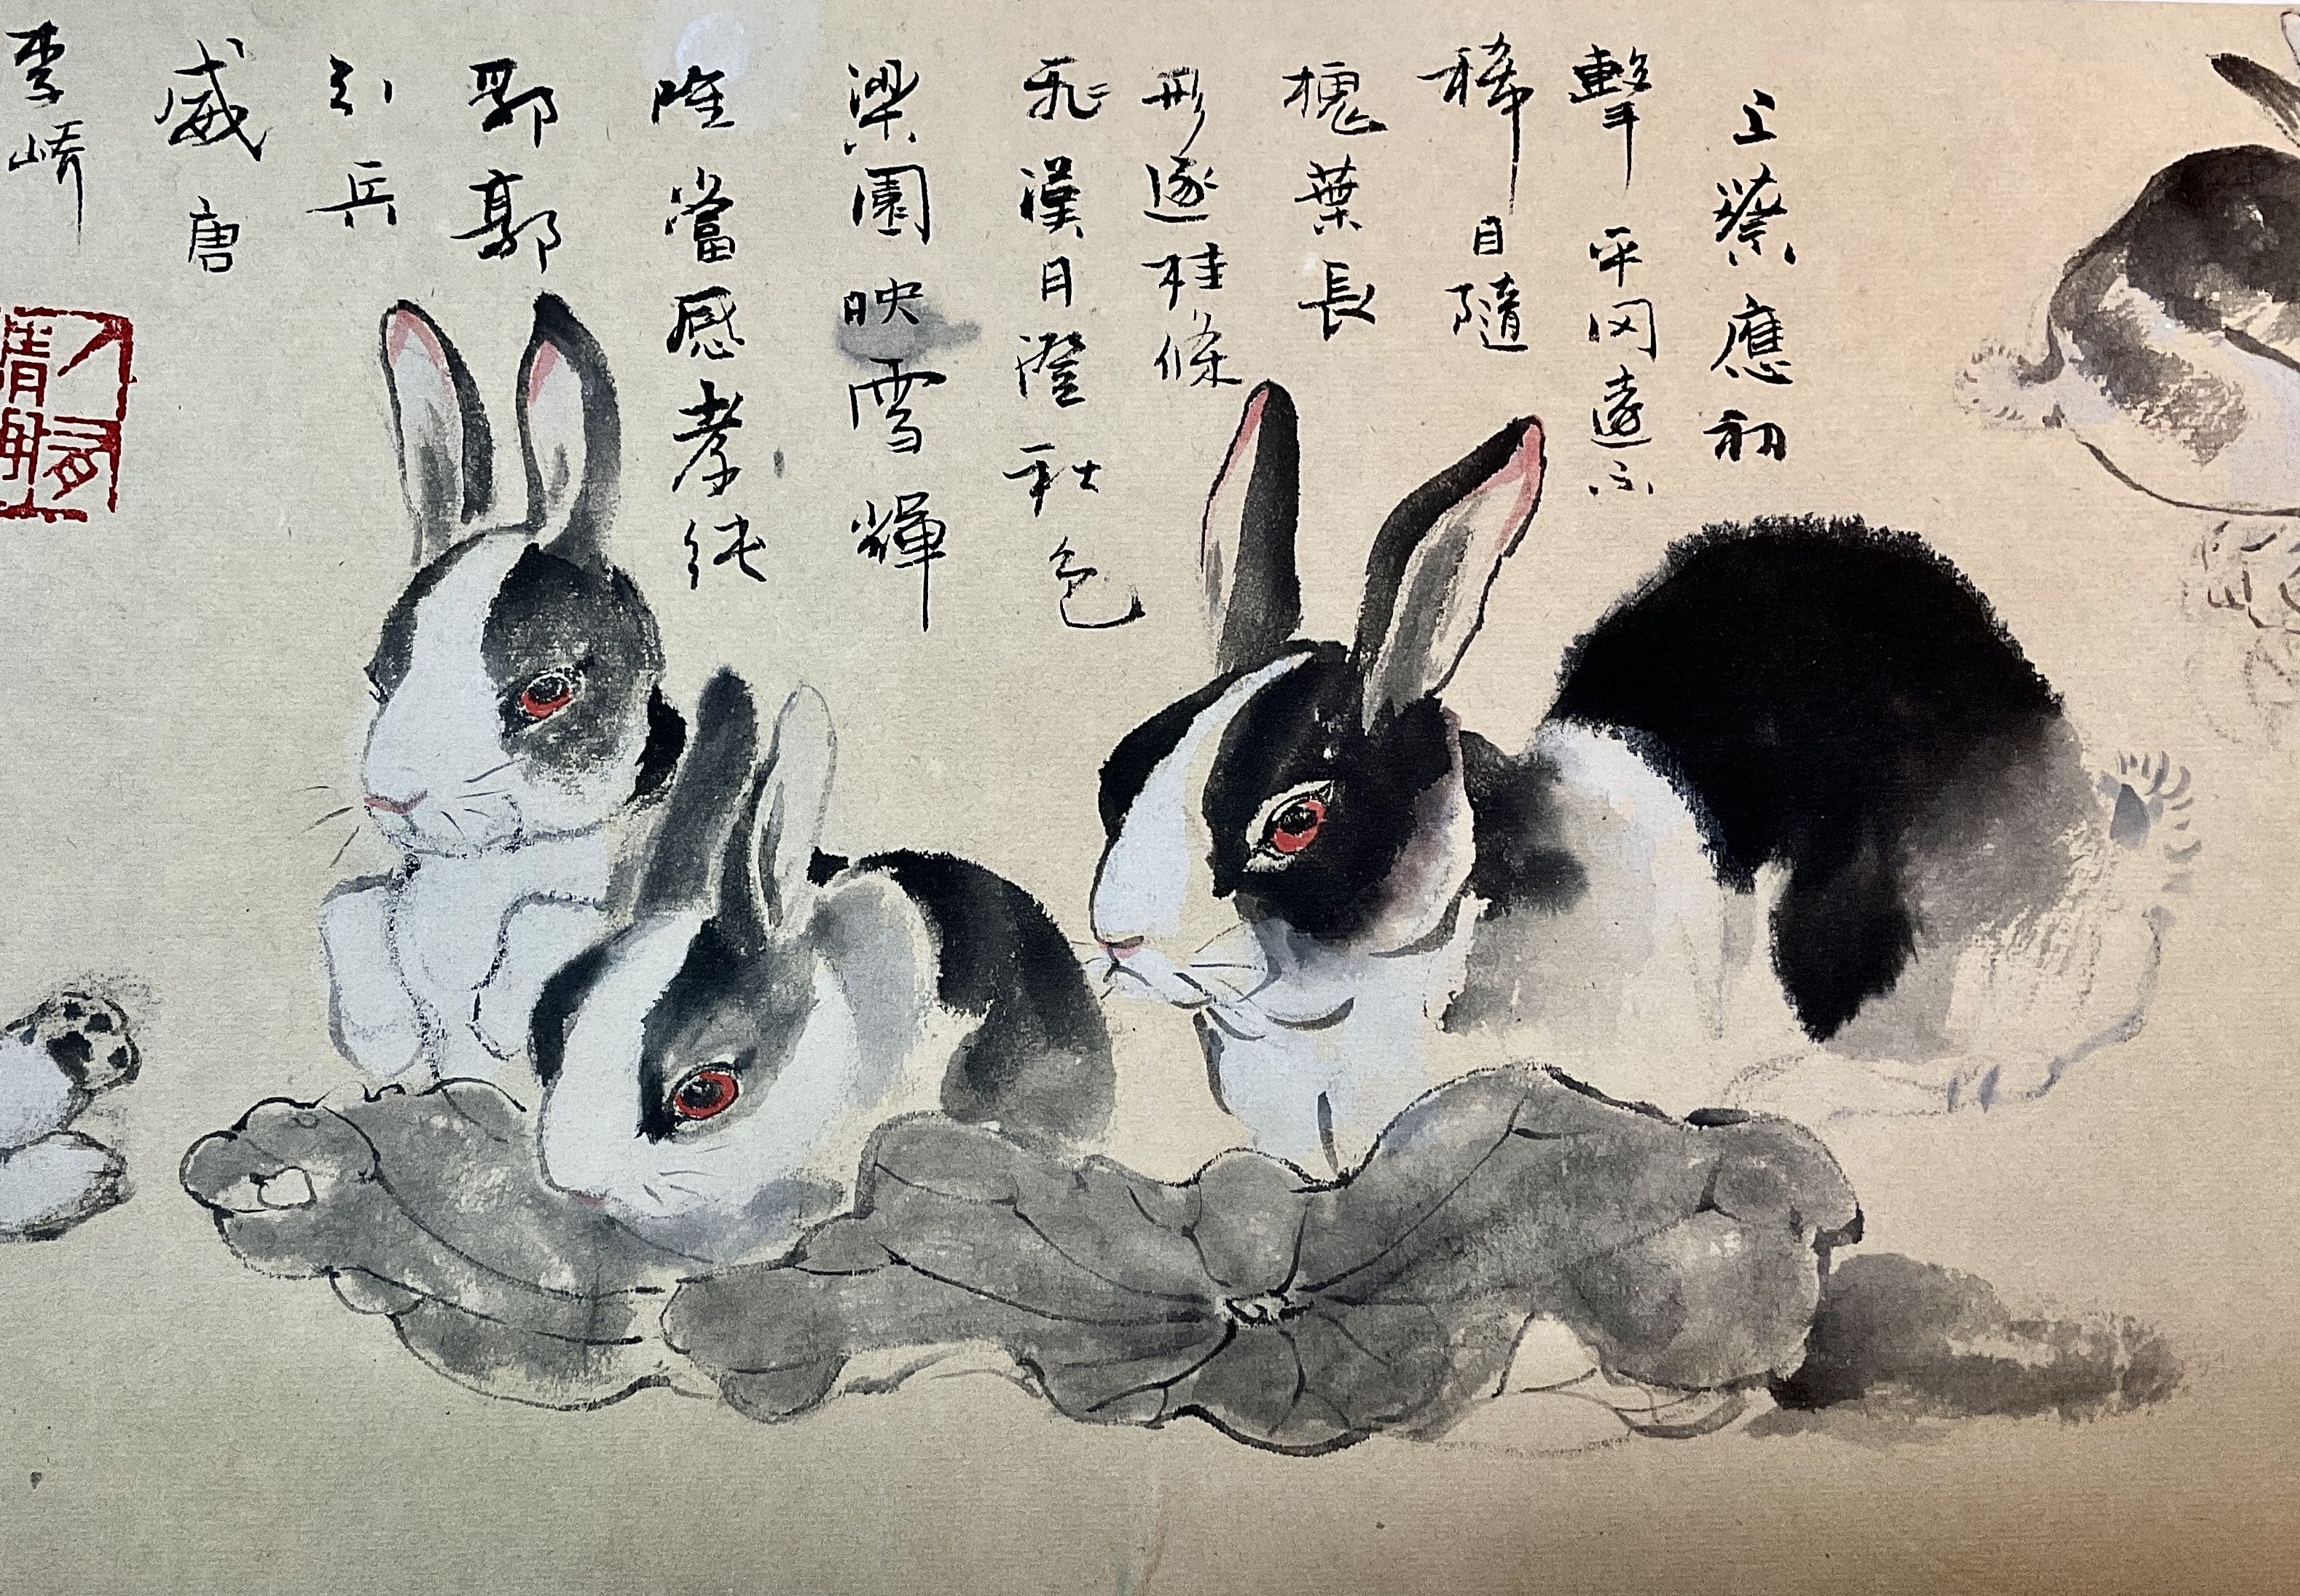 上蔡應初
擊平冈遠不
稀目隨
槐葉長
形逐桂條
飛漢月澄秋色
梁園映雪輝
唯當感孝純
郛郭
引兵
威唐
李嶠